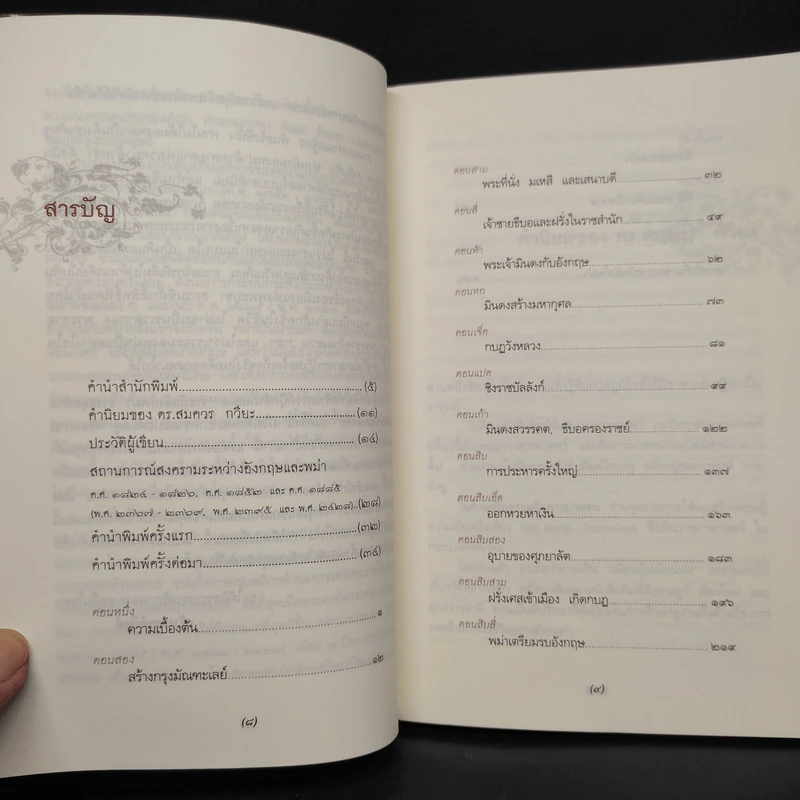 สารบัญ
คำนำสำนักพิมพ์..............................(๕)
คำนิยมของ ดร.สมควร กวิยะ....................(๑๑)
ประวัติผู้เขียน..............................(๑๔)
สถานการณ์สงครามระหว่างอังกฤษและพม่า
ค.ศ. ๑๘๒๔ - ๑๘๒๖, ค.ศ. ๑๘๕๒ และ ค.ศ. ๑๘๘๕
(พ.ศ. ๒๓๖๗ - ๒๓๖๙, พ.ศ. ๒๓๙๕ และ พ.ศ. ๒๔๒๘)..(๒๘)
คำนำพิมพ์ครั้งแรก..............................(๓๒)
คำนำพิมพ์ครั้งต่อมา..............................(๓๔)
ตอนหนึ่ง
ความเบื้องต้น..............................๑
ตอนสอง
สร้างกรุงมัณฑะเลย์..............................๑๒
(๘)
ตอนสาม
พระที่นั่ง มเหสี และเสนาบดี....................๓๒
ตอนสี่
เจ้าชายธีบอและฝรั่งในราชสำนัก....................๔๙
ตอนห้า
พระเจ้ามินดงกับอังกฤษ..............................๖๒
ตอนหก
มินดงสร้างมหากุศล..............................๗๓
ตอนเจ็ด
กบฏวังหลวง..............................๘๑
ตอนแปด
ชิงราชบัลลังก์..............................๙๙
ตอนเก้า
มินดงสวรรคต, ธีบอครองราชย์....................๑๒๒
ตอนสิบ
การประหารครั้งใหญ่..............................๑๓๗
ตอนสิบเอ็ด
ออกหวยหาเงิน..............................๑๖๓
ตอนสิบสอง
อุบายของศุภยาลัต..............................๑๘๓
ตอนสิบสาม
ฝรั่งเศสเข้าเมือง เกิดกบฏ....................๑๙๖
ตอนสิบสี่
พม่าเตรียมรบอังกฤษ..............................๒๑๙
(๙)